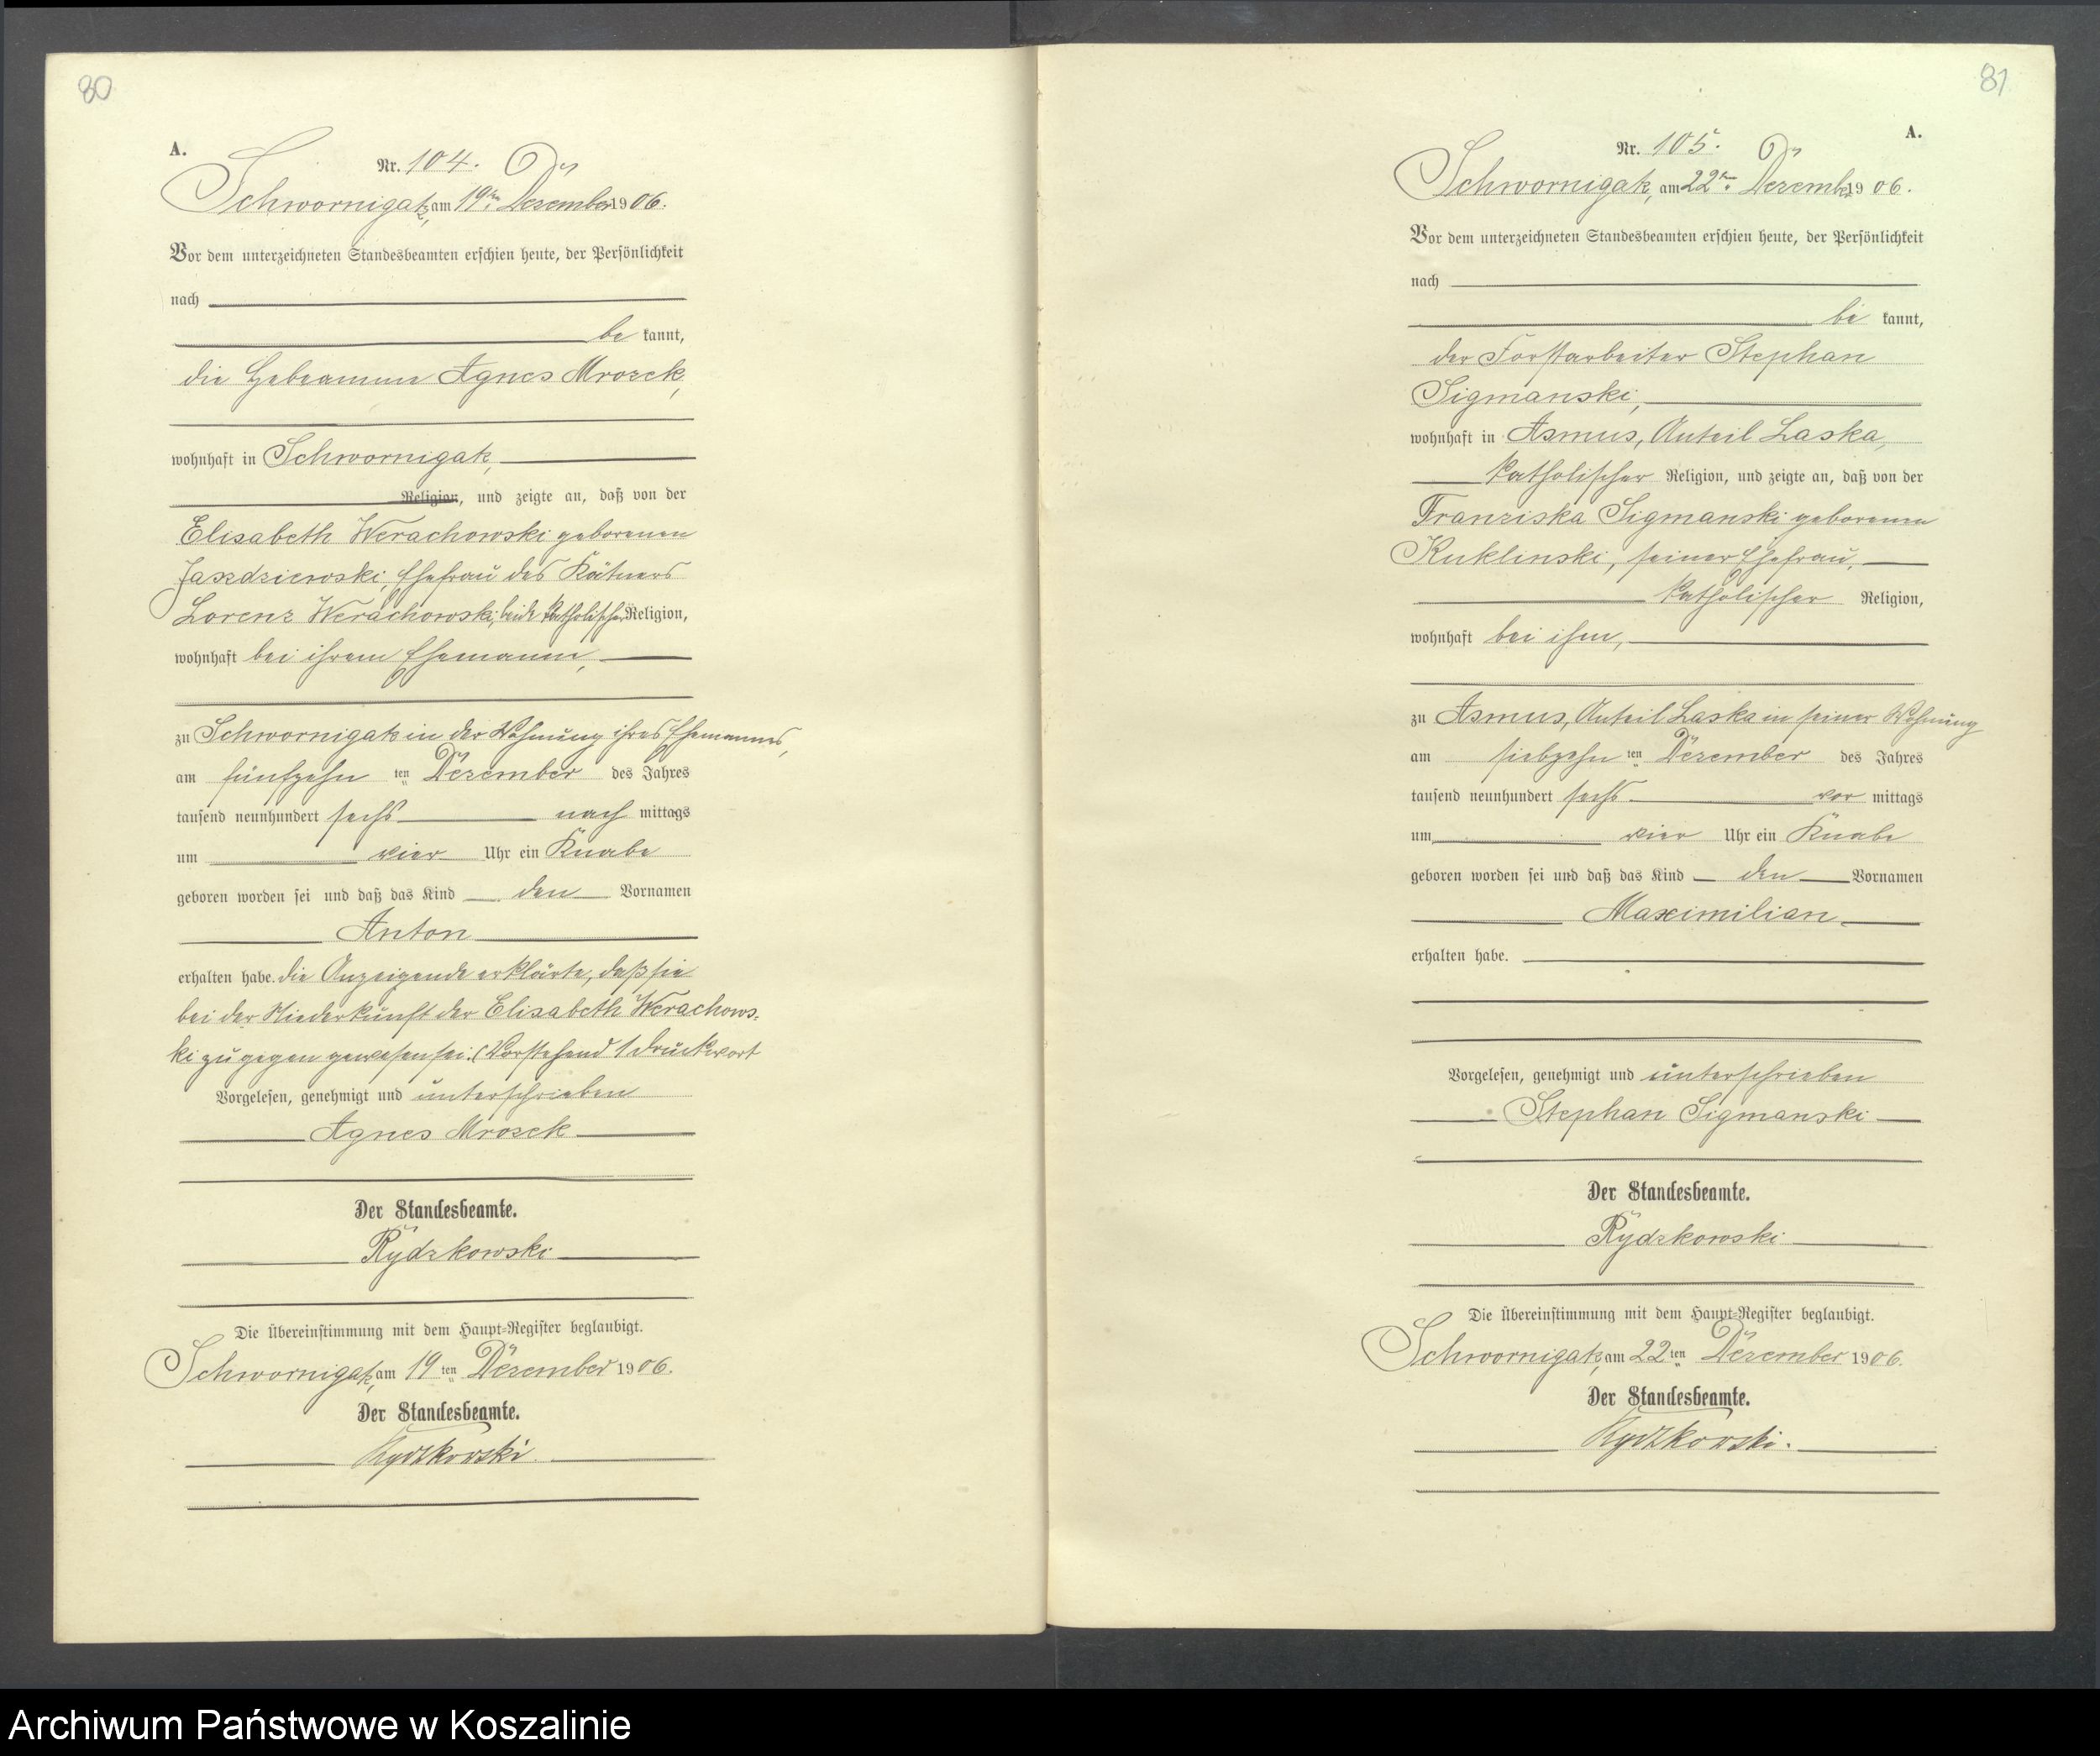 80
A.
Nr. 104.
Schwornigatz, am 19ten Dezember 1906.
Vor dem unterzeichneten Standesbeamten erschien heute, der Persönlichkeit
nach
be kannt,
die Hebeamme Agnes Mrozek,
wohnhaft in Schwornigatz,
Religion, und zeigte an, daß von der
Elisabeth Werachowski geborenen
Jazdziewski, Ehefrau des Kätners
Lorenz Werachowski, beide katholischer Religion,
wohnhaft bei ihrem Ehemanne,
zu Schwornigatz in der Wohnung ihres Ehemannes,
am fünfzehn ten Dezember des Jahres
tausend neunhundert sechs nach mittags
um vier Uhr ein Knabe
geboren worden sei und daß das Kind den Vornamen
Anton
erhalten habe. die Anzeigende erklärte, daß sie
bei der Niederkunft der Elisabeth Werachows-
ki zugegen gewesen sei. (Vorstehend 1 Druckwort
Vorgelesen, genehmigt und unterschrieben
Agnes Mrozek
Der Standesbeamte.
Rydzkowski
Die Übereinstimmung mit dem Haupt-Register beglaubigt.
Schwornigatz, am 19 ten Dezember 1906.
Der Standesbeamte.
Rydzkowski.
81
A.
Nr. 105.
Schwornigatz, am 22ten Dezember 1906.
Vor dem unterzeichneten Standesbeamten erschien heute, der Persönlichkeit
nach
be kannt,
der Forstarbeiter Stephan
Sigmanski,
wohnhaft in Asmus, Anteil Laska,
katholischer Religion, und zeigte an, daß von der
Franziska Sigmanski geborenen
Kuklinski, seiner Ehefrau,
katholischer Religion,
wohnhaft bei ihm,
zu Asmus, Anteil Laska in seiner Wohnung
am siebzehn ten Dezember des Jahres
tausend neunhundert sechs vor mittags
um vier Uhr ein Knabe
geboren worden sei und daß das Kind den Vornamen
Maximilian
erhalten habe.
Vorgelesen, genehmigt und unterschrieben
Stephan Sigmanski
Der Standesbeamte.
Rydzkowski
Die Übereinstimmung mit dem Haupt-Register beglaubigt.
Schwornigatz, am 22 ten Dezember 1906.
Der Standesbeamte.
Rydzkowski.
Archiwum Państwowe w Koszalinie